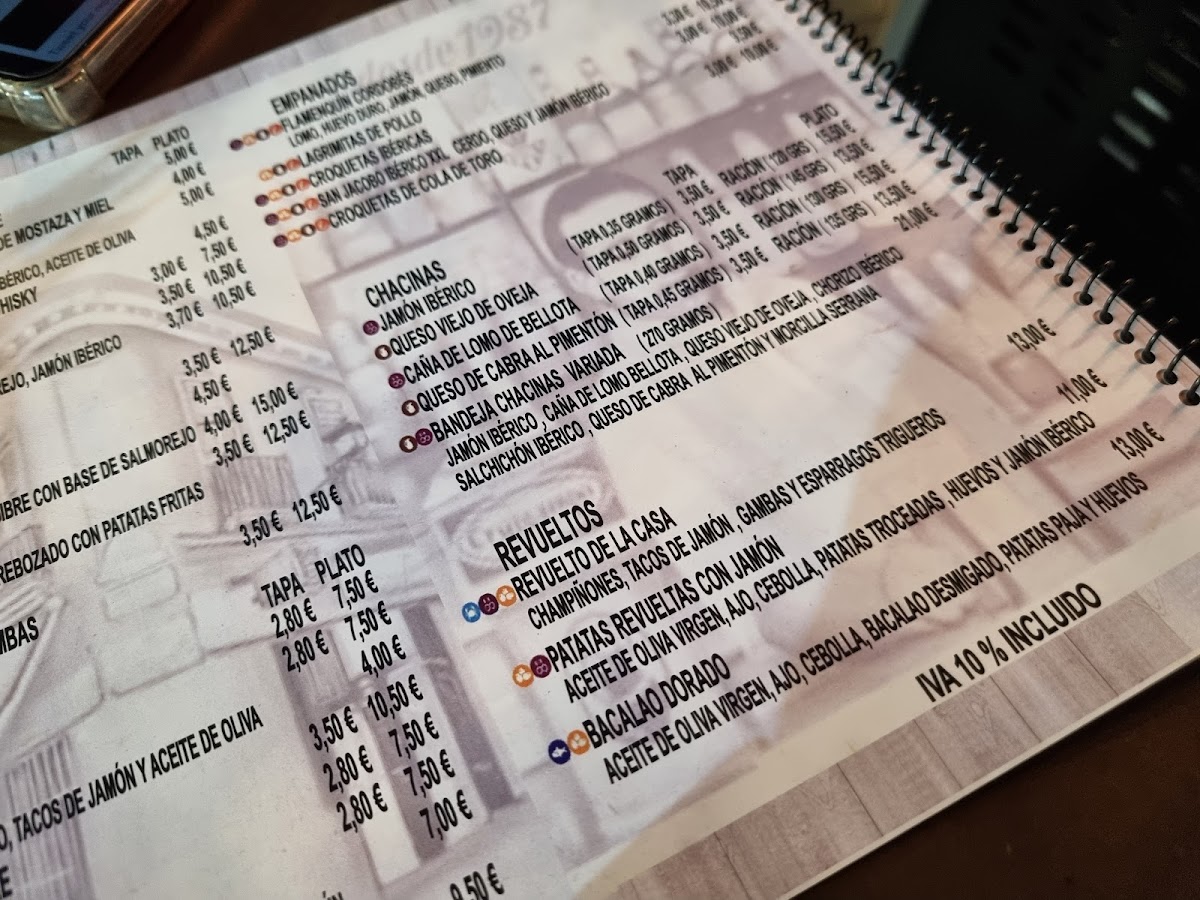 TAPA PLATO
5,00 €
4,00 €
DE MOSTAZA Y MIEL 5,00 €
4,50 €
IBÉRICO, ACEITE DE OLIVA 3,00 € 7,50 €
HISKY 3,50 € 10,50 €
3,70 € 10,50 €
EJO, JAMÓN IBÉRICO 3,50 € 12,50 €
4,50 €
IBRE CON BASE DE SALMOREJO 4,00 € 15,00 €
3,50 € 12,50 €
REBOZADO CON PATATAS FRITAS
3,50 € 12,50 €
TAPA PLATO
2,80 € 7,50 €
MBAS 2,80 € 7,50 €
4,00 €
3,50 € 10,50 €
O, TACOS DE JAMÓN Y ACEITE DE OLIVA 2,80 € 7,50 €
2,80 € 7,50 €
7,00 €
9,50 €
desde 1987
EMPANADOS
FLAMENQUÍN CORDOBÉS
LOMO, HUEVO DURO, JAMÓN, QUESO, PIMIENTO
LAGRIMITAS DE POLLO
CROQUETAS IBÉRICAS
SAN JACOBO IBÉRICO XXL, CERDO, QUESO Y JAMÓN IBÉRICO
CROQUETAS DE COLA DE TORO
CHACINAS TAPA PLATO
JAMÓN IBÉRICO (TAPA 0,35 GRAMOS) 3,50 € RACIÓN (120 GRS) 15,50 €
QUESO VIEJO DE OVEJA (TAPA 0,50 GRAMOS) 3,50 € RACIÓN (145 GRS) 13,50 €
CAÑA DE LOMO DE BELLOTA (TAPA 0,40 GRAMOS) 3,50 € RACIÓN (130 GRS) 15,50 €
QUESO DE CABRA AL PIMENTÓN (TAPA 0,45 GRAMOS) 3,50 € RACIÓN (135 GRS) 13,50 €
BANDEJA CHACINAS VARIADA (270 GRAMOS) 21,00 €
JAMÓN IBÉRICO, CAÑA DE LOMO BELLOTA, QUESO VIEJO DE OVEJA, CHORIZO IBÉRICO
SALCHICHÓN IBÉRICO, QUESO DE CABRA AL PIMENTÓN Y MORCILLA SERRANA
REVUELTOS
REVUELTO DE LA CASA 13,00 €
CHAMPIÑONES, TACOS DE JAMÓN, GAMBAS Y ESPARRAGOS TRIGUEROS
PATATAS REVUELTAS CON JAMÓN 11,00 €
ACEITE DE OLIVA VIRGEN, AJO, CEBOLLA, PATATAS TROCEADAS, HUEVOS Y JAMÓN IBÉRICO
BACALAO DORADO 13,00 €
ACEITE DE OLIVA VIRGEN, AJO, CEBOLLA, BACALAO DESMIGADO, PATATAS PAJA Y HUEVOS
IVA 10 % INCLUIDO